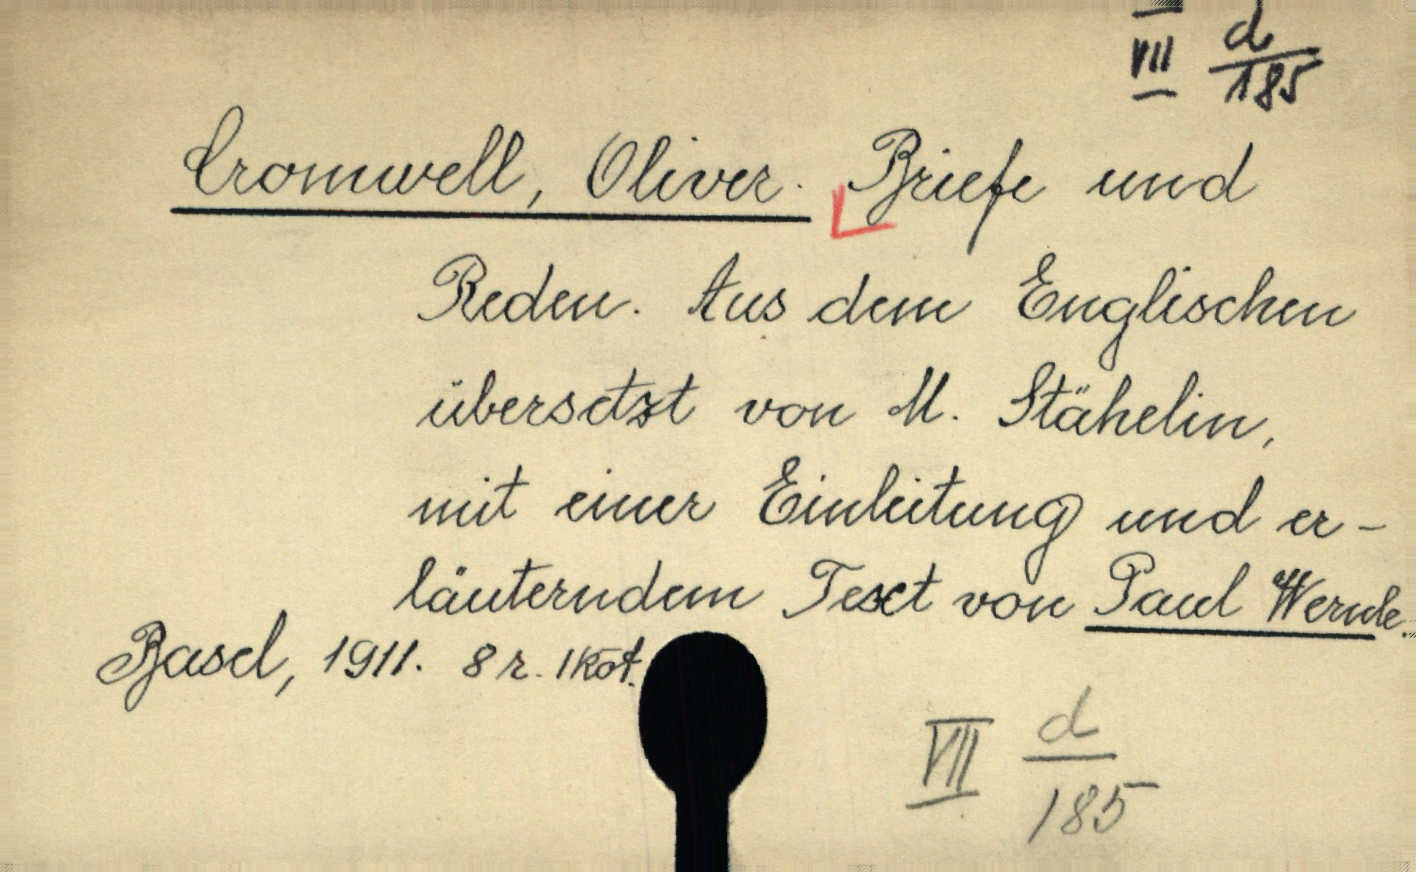 VII d/185
Cromwell, Oliver. Briefe und
Reden. Aus dem Englischen
übersetzt von M. Stähelin,
mit einer Einleitung und er-
läuterndem Text von Paul Wernle.
Basel, 1911. 8r. 1köt.
VII d/185